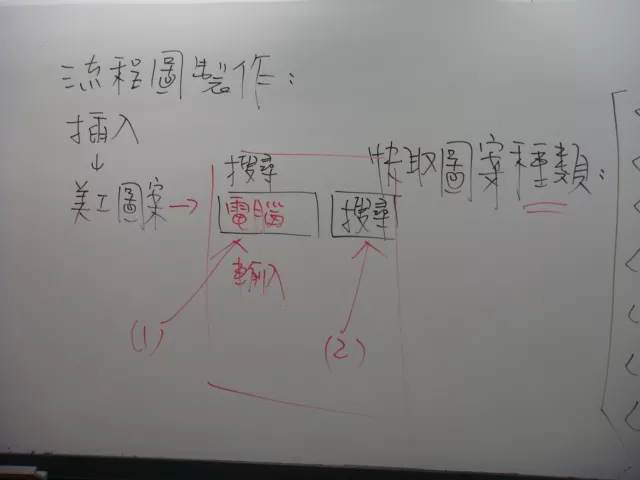 流程圖製作：
插入
↓
美工圖案→
搜尋
電腦
搜尋
輸入
(1)
(2)
快取圖案種類：